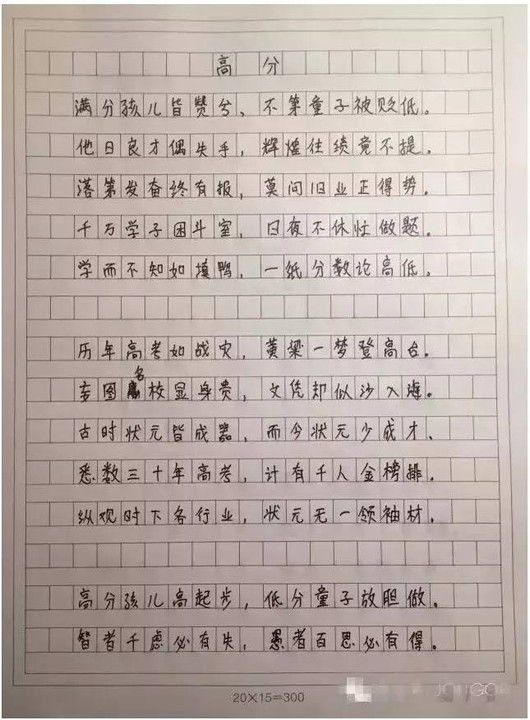 高分
满分孩儿皆赞兮，不第童子被贬低。
他日良才偶失手，辉煌往绩竟不提。
落第发奋终有报，莫问旧业正得势。
千万学子困斗室，日夜不休忙做题。
学而不知如填鸭，一纸分数论高低。
历年高考如战灾，黄梁一梦登高台。
妄图名校显身贵，文凭却似沙入海。
古时状元皆成器，而今状元少成才。
悉数三十年高考，计有千人金榜排。
纵观时下各行业，状元无一领袖材。
高分孩儿高起步，低分童子放胆做。
智者千虑必有失，愚者百思必有得。
20×15=300